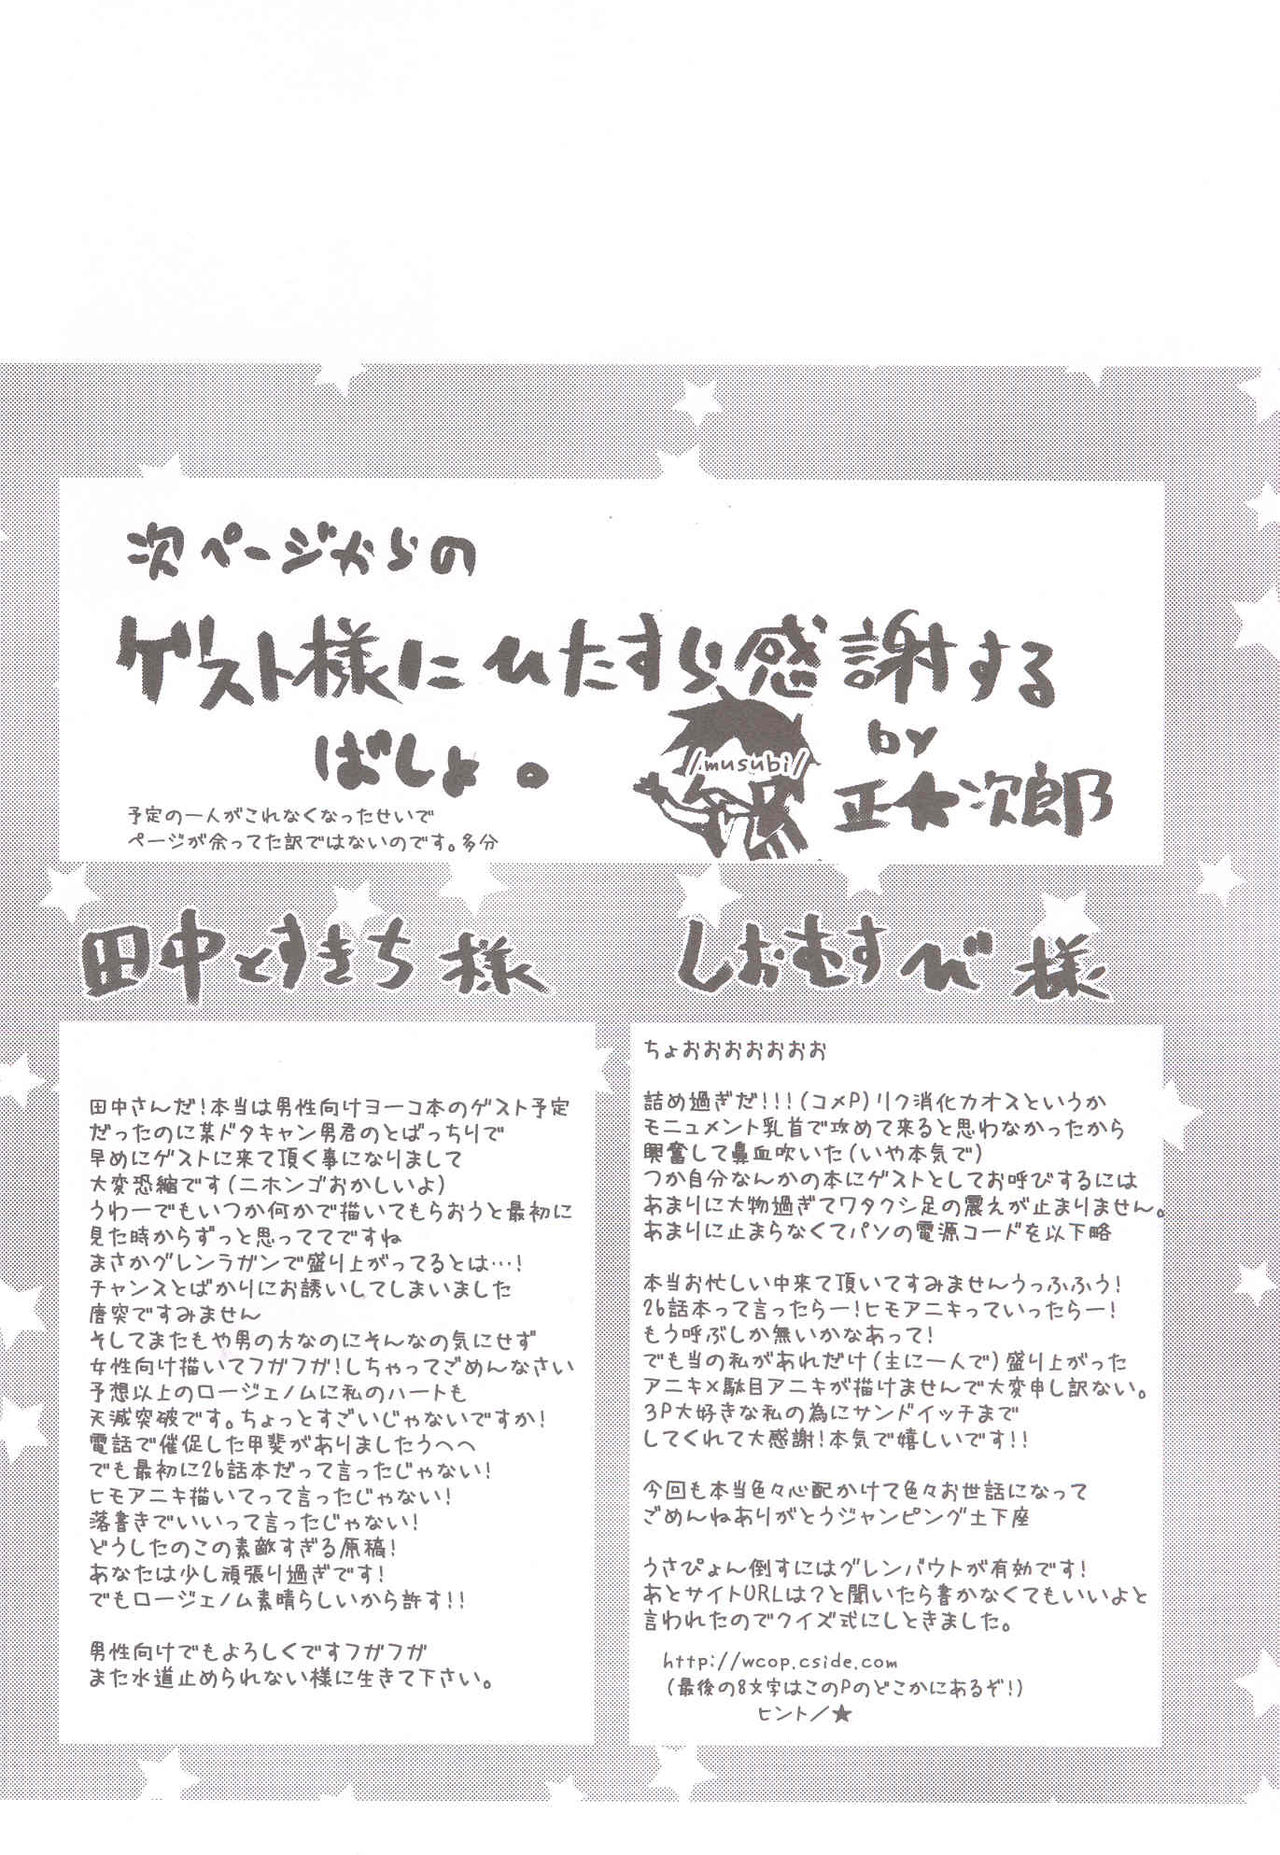 次ページからの
ゲスト様にひたすら感謝する
ばしょ。
/musubi/
by
正★次郎
予定の一人がこれなくなったせいで
ページが余ってた訳ではないのです。多分
田中とすきち様
田中さんだ!本当は男性向けヨーコ本のゲスト予定
だったのに某ドタキャン男君のとばっちりで
早めにゲストに来て頂く事になりまして
大変恐縮です(ニホンゴおかしいよ)
うわーでもいつか何かで描いてもらおうと最初に
見た時からずっと思っててですね
まさかグレンラガンで盛り上がってるとは…!
チャンスとばかりにお誘いしてしまいました
唐突ですみません
そしてまたもや男の方なのにそんなの気にせず
女性向け描いてフガフガ!しちゃってごめんなさい
予想以上のロージェノムに私のハートも
天減突破です。ちょっとすごいじゃないですか!
電話で催促した甲斐がありましたうへへ
でも最初に26話本だって言ったじゃない!
ヒモアニキ描いてって言ったじゃない!
落書きでいいって言ったじゃない!
どうしたのこの素敵すぎる原稿!
あなたは少し頑張り過ぎです!
でもロージェノム素晴らしいから許す!!
男性向けでもよろしくですフガフガ
また水道止められない様に生きて下さい。
しおむすび様
ちょおおおおおおおお
詰め過ぎだ!!!(コメP)リク消化カオスというか
モニュメント乳首で攻めて来ると思わなかったから
興奮して鼻血吹いた(いや本気で)
つか自分なんかの本にゲストとしてお呼びするには
あまりに大物過ぎてワタクシ足の震えが止まりません。
あまりに止まらなくてパソの電源コードを以下略
本当お忙しい中来て頂いてすみませんうっふふう!
26話本って言ったらー!ヒモアニキっていったらー!
もう呼ぶしか無いかなあって!
でも当の私があれだけ(主に一人で)盛り上がった
アニキ×駄目アニキが描けませんで大変申し訳ない。
3P大好きな私の為にサンドイッチまで
してくれて大感謝!本気で嬉しいです!!
今回も本当色々心配かけて色々お世話になって
ごめんねありがとうジャンピング土下座
うさぴょん倒すにはグレンバウトが有効です!
あとサイトURLは?と聞いたら書かなくてもいいよと
言われたのでクイズ式にしときました。
http://wcop.cside.com
(最後の8文字はこのPのどこかにあるぞ!)
ヒント/★